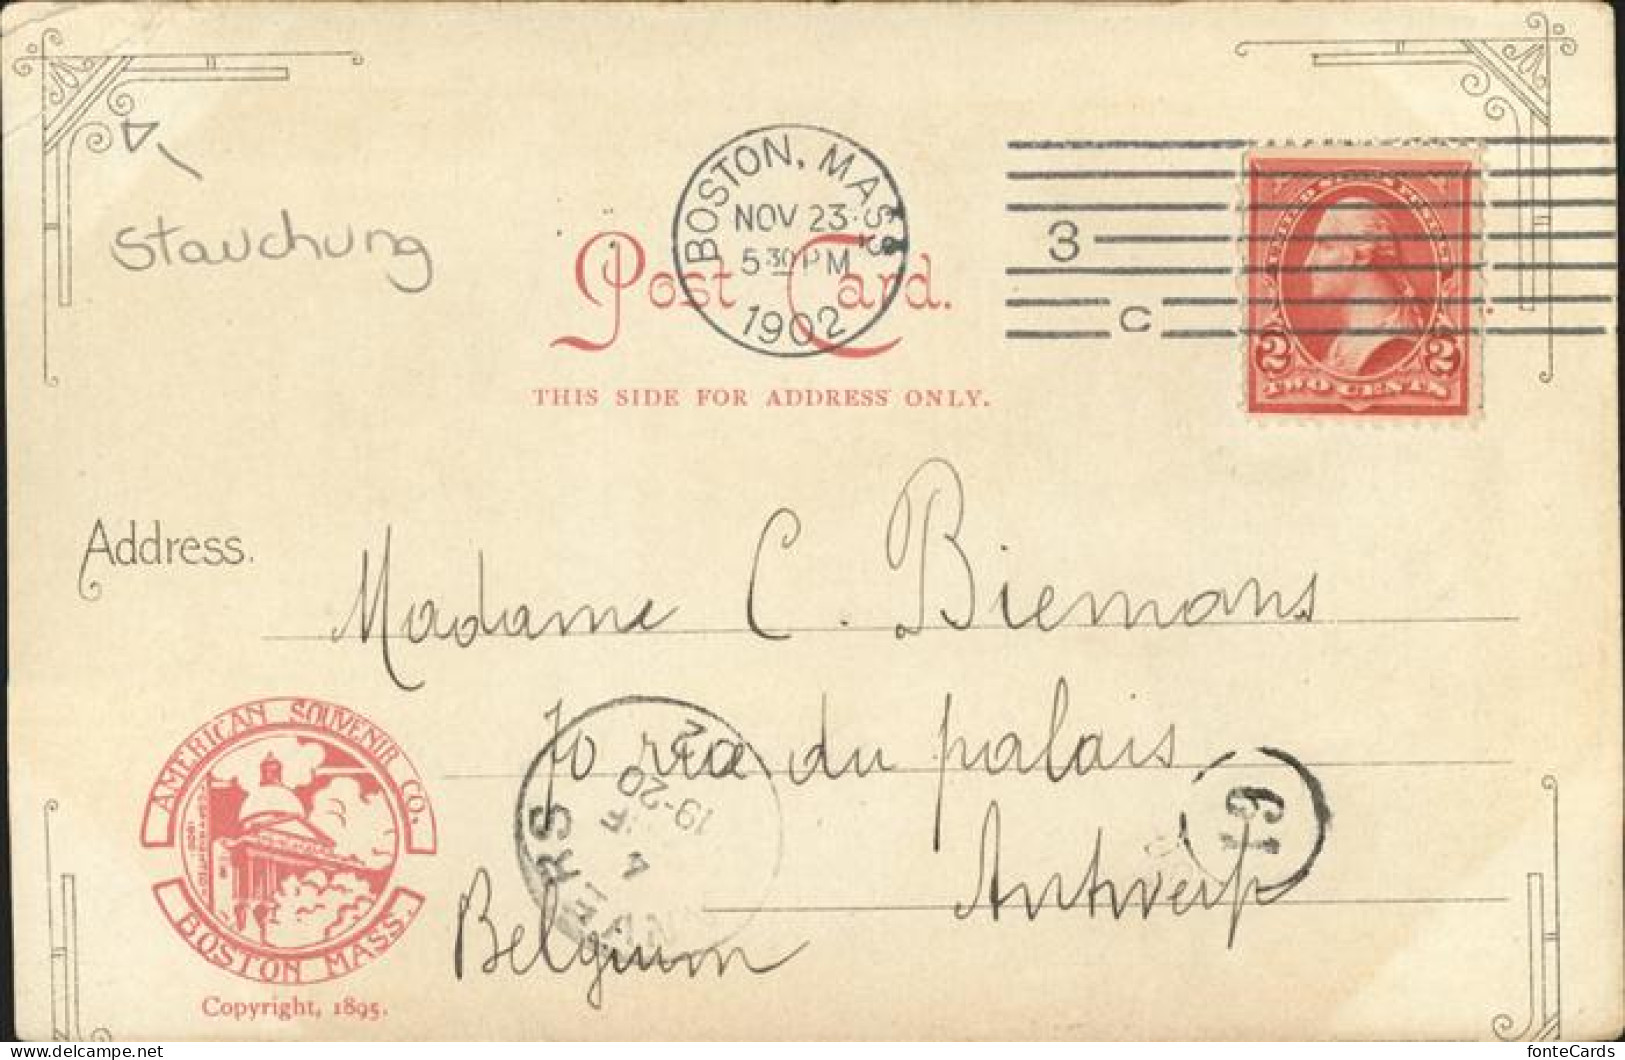 Stauchung
BOSTON, MASS.
NOV 23
5 30 PM
1902
3
C
2 2
TWO CENTS
Post Card.
THIS SIDE FOR ADDRESS ONLY.
Address.
Madame C. Biemans
70 rue du palais
Antwerp
Belgium
19-20
4
19
AMERICAN SOUVENIR CO.
BOSTON MASS.
Copyright, 1895.
delcampe.net
fonteCards